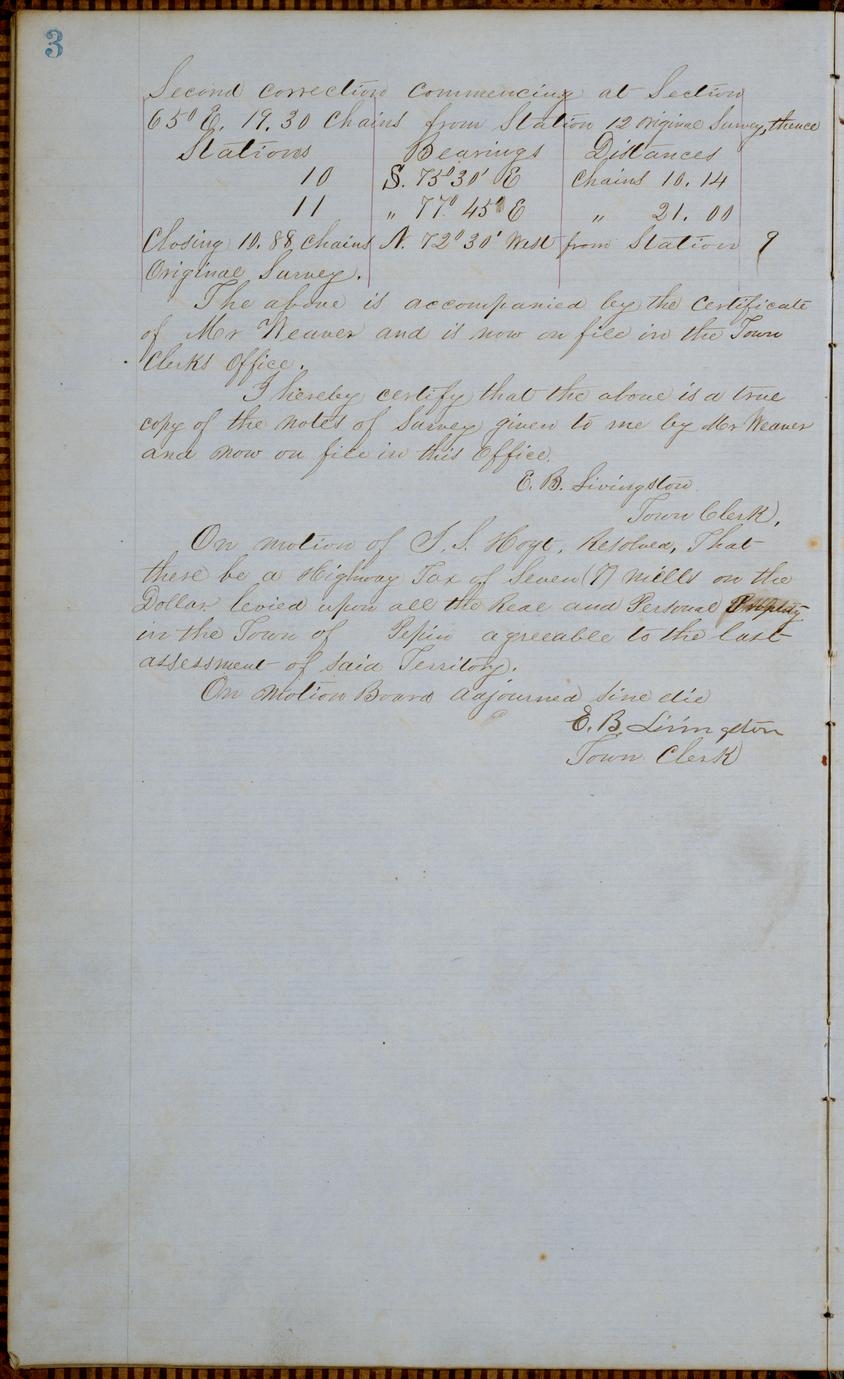 3
Second correction commencing at Section
65° E. 19.30 Chains from Station 12 original Survey, thence
Stations Bearings Distances
10 S. 75° 30' E Chains 10.14
11 „ 77° 45° E „ 21.00
Closing 10.88 Chains N. 72° 30' West from Station 9
Original Survey.
The above is accompanied by the Certificate
of Mr Weaver and is now on file in the Town
Clerks Office.
I hereby certify that the above is a true
copy of the notes of Survey given to me by Mr Weaver
and now on file in this Office.
E. B. Livingston
Town Clerk.
On motion of S. S. Hoyt, Resolved, That
there be a Highway Tax of Seven (7) mills on the
Dollar levied upon all the Real and Personal Property
in the Town of Pepin agreeable to the last
assessment of said Territory.
On motion Board adjourned sine die
E. B. Livingston
Town Clerk